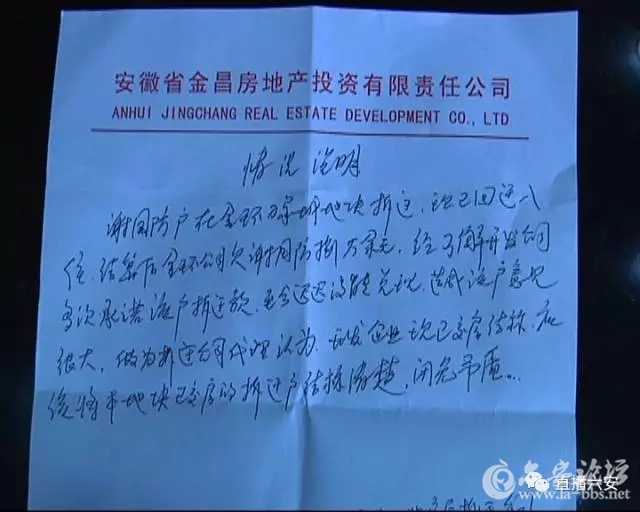 安徽省金昌房地产投资有限责任公司
ANHUI JINGCHANG REAL ESTATE DEVELOPMENT CO., LTD
情况说明
谢国防户在金环万景城地块拆迁，现已回迁入
住，结算后金环公司欠谢国防捌万余元，经了解开发公司
多次承诺该户拆迁款，至今迟迟没能兑现，造成该户意见
很大，做为拆迁公司代理认为，开发企业现已交房结束，应
该将本地块已交房的拆迁户结算清楚，闭免矛盾。
六安论坛
www.la-bbs.net
直播六安